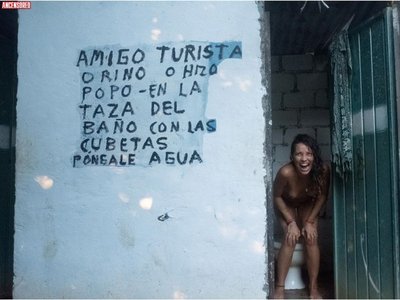 ANCENSORED
AMIGO TURISTA
O RINO O HIZO
POPO-EN LA
TAZA DEL
BAÑO CON LAS
CUBETAS
PÓNGALE AGUA